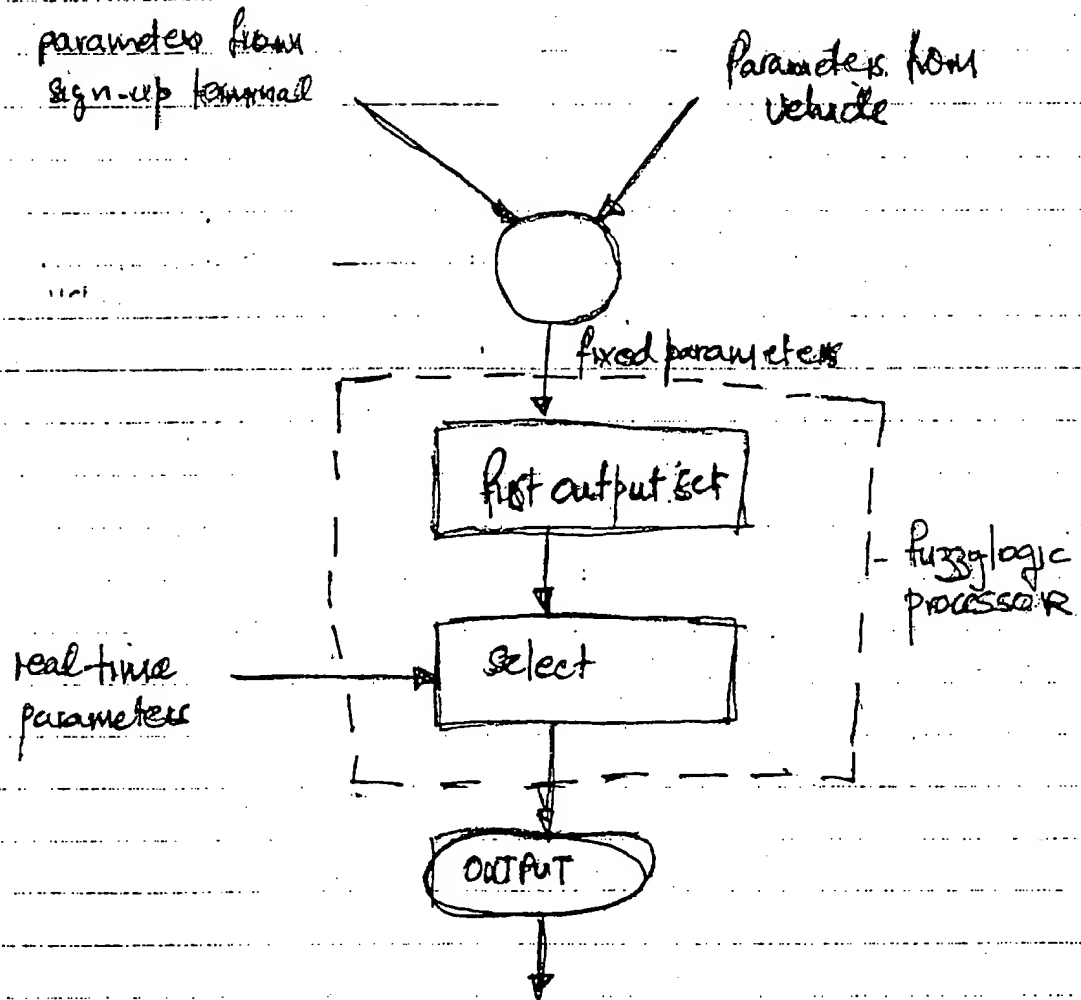 parameters from
sign-up terminal
Parameters from
vehicle
fixed parameters
first output set
fuzzy logic
PROCESSOR
select
real-time
parameters
OUTPUT